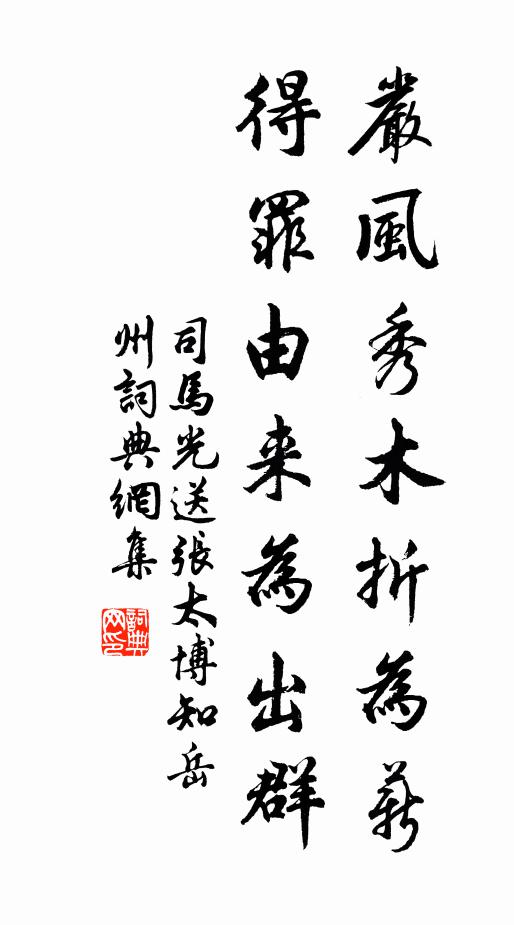 嚴風秀木折為薪
得罪由来為出群
司馬光送張太博知岳
州詞典網集
詞典
网印